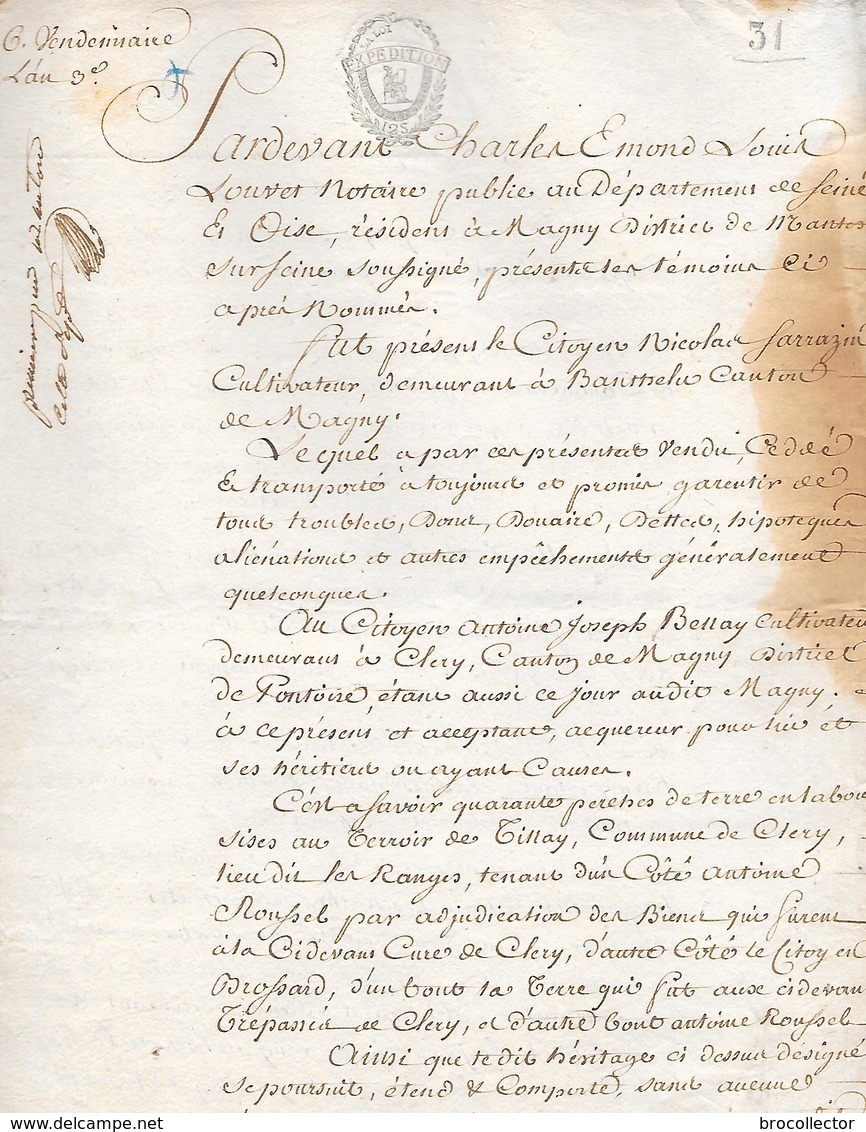 6. Vendemiaire
L'an 3e.
31
LA LOI
EXPEDITION
Pardevant Charles Emond Louis
Louvet Notaire public au Département de Seine
Et Oise, résident à Magny District de Mantes
sur seine soussigné, présents les témoins Ci
après Nommés.
fut présent le Citoyen Nicolas Sarrazin
Cultivateur, demeurant à Banthelu Canton
de Magny.
Lequel a par ces présentes Vendu, Ceddé
Et transporté à toujours et promis garentir de
tous troubles, Dons, Douaire, Dettes, hipoteques
aliénations et autres empêchements généralement
quelconques.
Au Citoyen Antoine Joseph Bellay Cultivateu
demeurant à Clery, Canton de Magny District
de Pontoise, étant aussi ce jour audit Magny. et
à ce présent et acceptant, acquereur pour lui et
ses héritiers ou ayant Causes.
C'est a savoir quarante perches de terre en labou
sises au Terroir de Tillay, Commune de Clery,
lieu dit les Ranges, tenant d'un Côté antoine
Roussel par adjudication des Biens qui furent
à la Cidevant Cure de Clery, d'autre Côté le Citoyen
Brossard, d'un bout la Terre qui fut aux cidevan
Trépassés de Clery, et d'autre bout antoine Roussel
Ainsi que le dit héritage ci dessus désigné
se poursuit, étend & Comporte, sans aucune
www.delcampe.net
brocollector